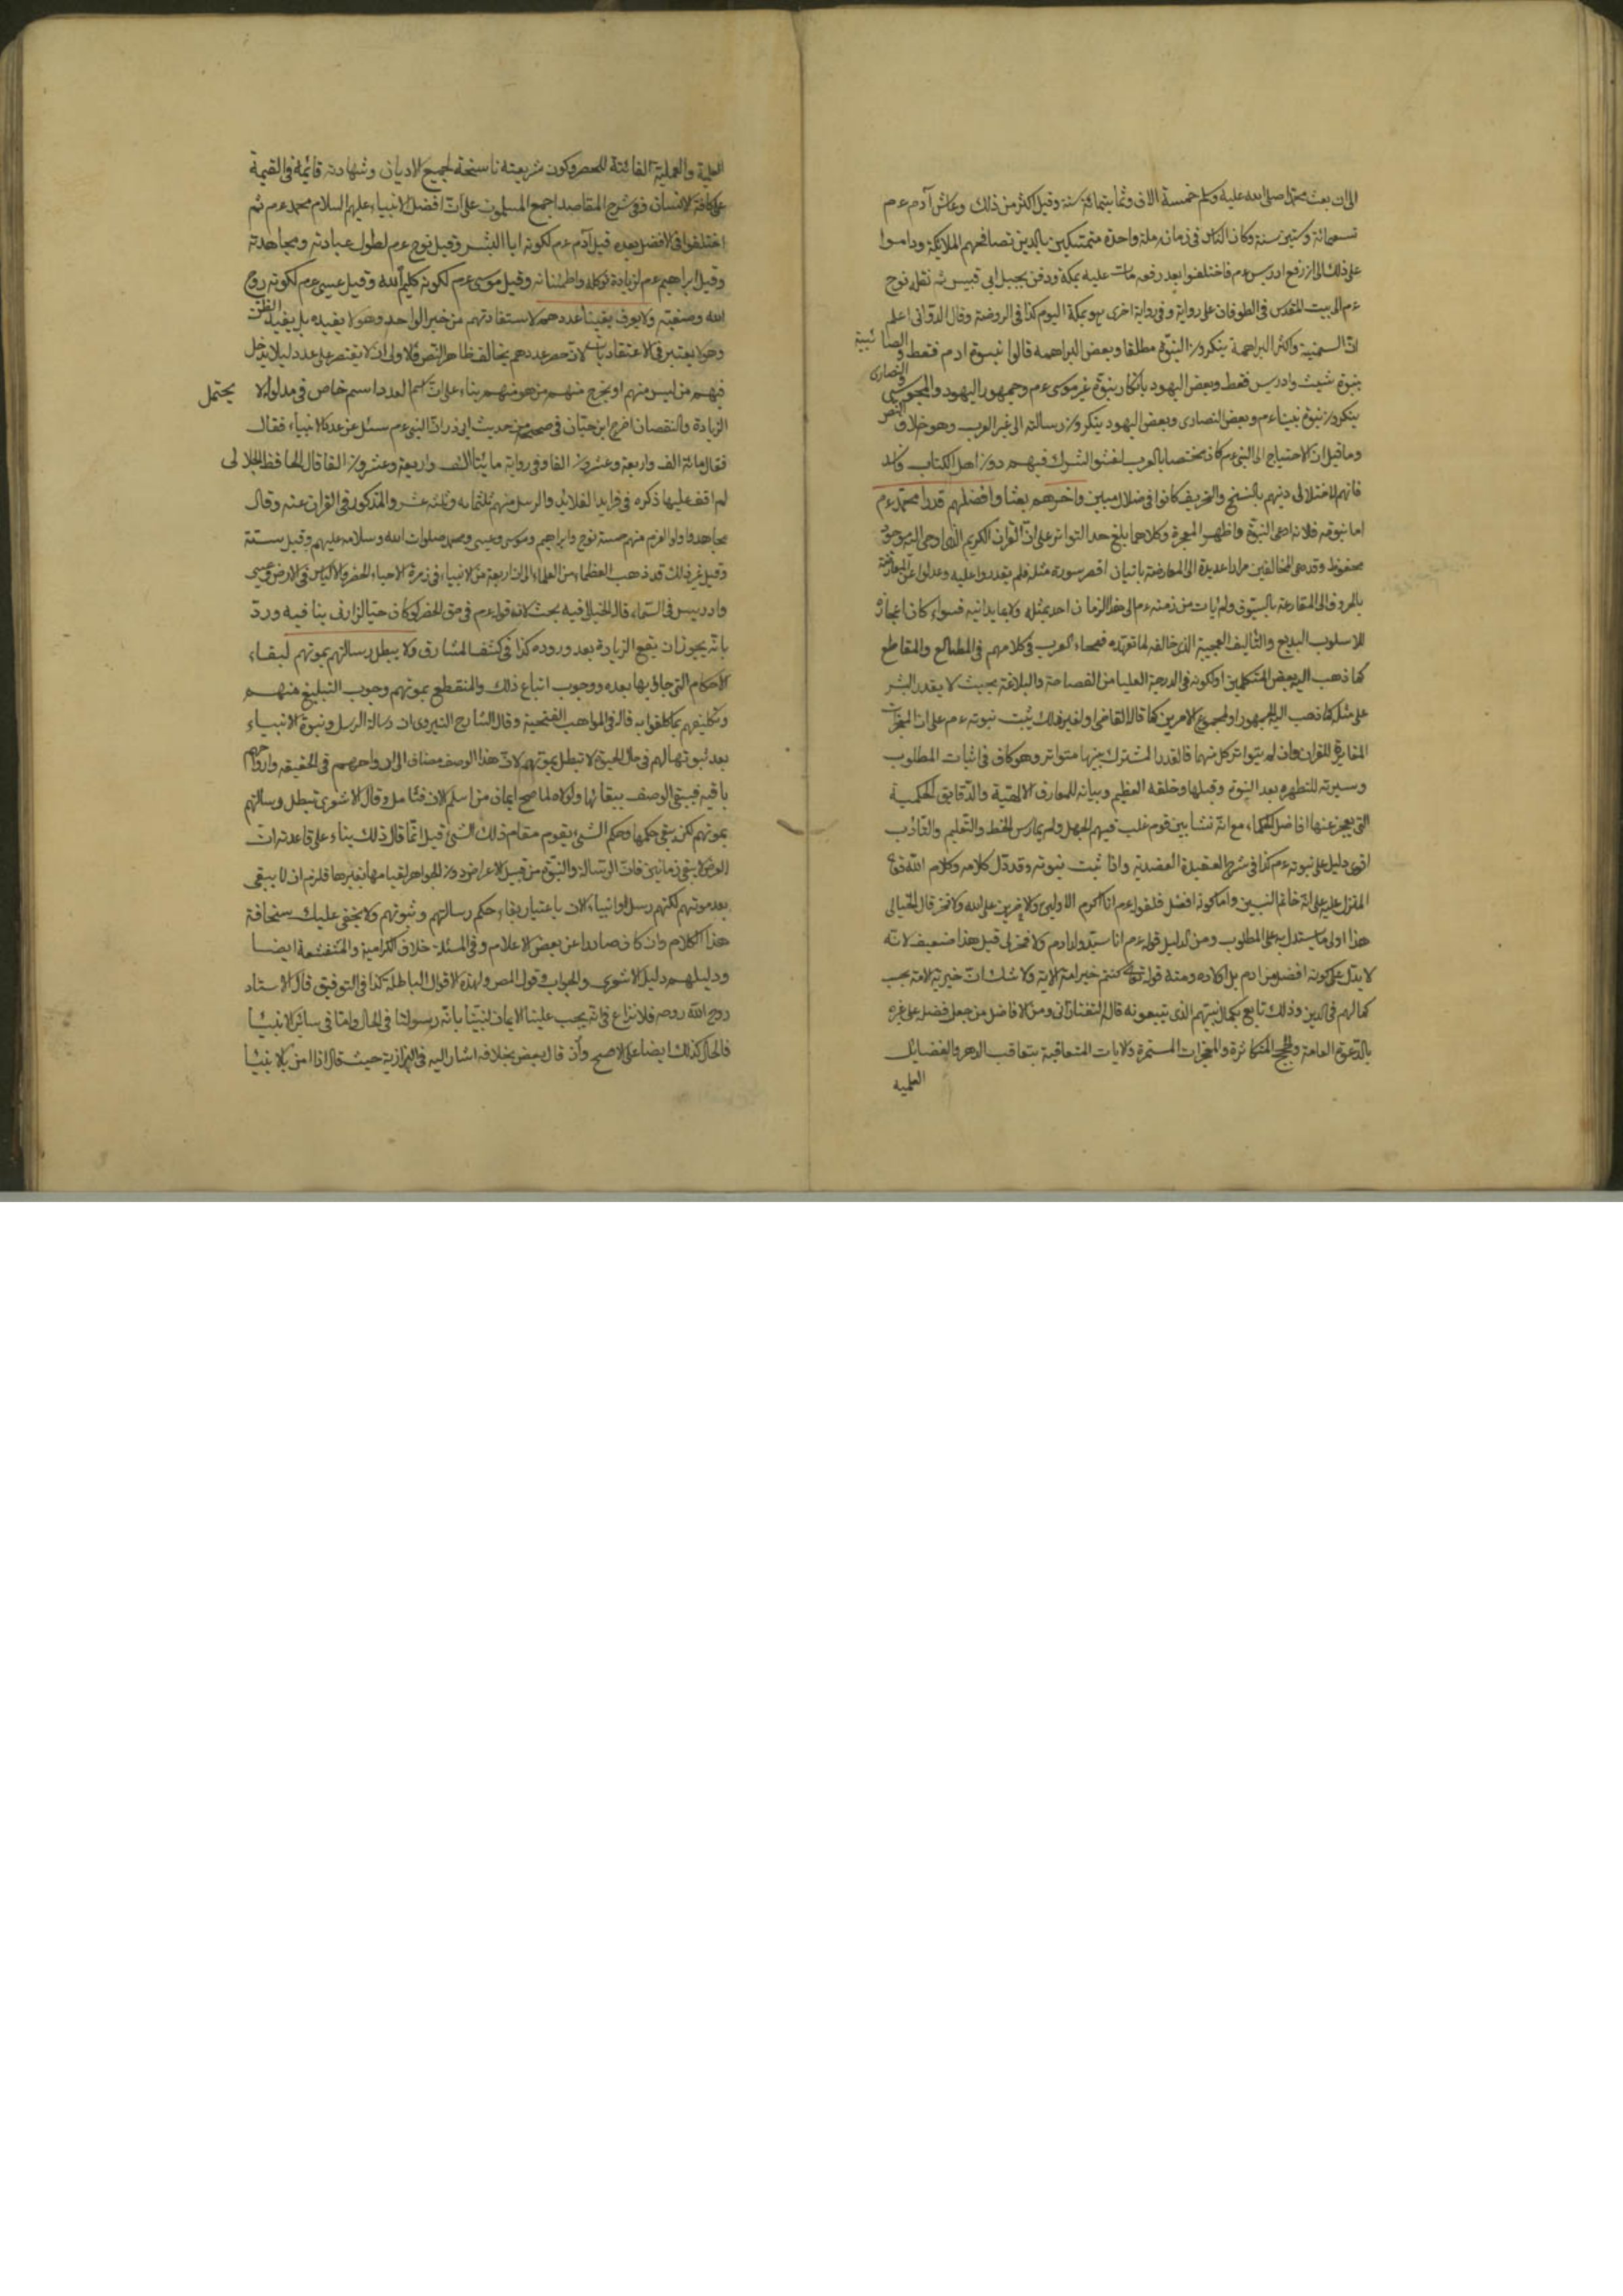 الى ان بعث محمد صلى الله عليه وسلم خمسة الاف وثمانمائة سنة وقيل اكثر من ذلك وعاش آدم عم
تسعمائة وستين سنة وكان الناس فى زمانه ملة واحدة متمسكين بالدين تصافحهم الملائكة وداموا
على ذلك الى ان رفع ادريس عم فاختلفوا بعد رفعه مات عليه بمكة ودفن بجبل ابى قبيس ثم نقله نوح
عم الى بيت المقدس فى الطوفان على رواية وفى رواية اخرى هو بمكة اليوم كذا فى الروضة وقال الدوانى اعلم
ان السمنية واكثر البراهمة ينكرون النبوة مطلقا وبعض البراهمه قالوا بنبوة ادم فقط والصائبية
بنبوة شيث وادريس فقط وبعض اليهود بانكار بنبوة غير موسى عم وجمهور اليهود والمجوسى والنصارى
ينكرون نبوة نبينا عم وبعض النصارى وبعض اليهود ينكرون رسالته الى غير العرب وهو خلاف النص
وما قيل ان الاحتياج الى النبى عم كان مختصا بالعرب لفشو الشرك فيهم دون اهل الكتاب
فانهم لاختلال دينهم بالنسخ والتحريف كانوا فى ضلال مبين واخرهم بعثا وافضلهم قدرا محمد عم
اما نبوته فلانه ادعى النبوة واظهر المعجزة وكلاهما بلغ حد التواتر على ان القران الكريم الذى اوحى اليه موجود
محفوظ وقد دعى المخالفين مرارا عديدة الى المعارضة باتيان اقصر سورة مثله فلم يقدروا عليه وعدلوا عن المعارضة
بالحروف الى المقارعة بالسيوف ولم يات من زمنه عم الى هذا الزمان احد بمثله ولا بما يدانيه فسواء كان اعجازه
للاسلوب البديع والتاليف العجيبة الذى خالف لما تعهده فصحاء العرب فى كلامهم فى المطالع والمقاطع
كما ذهب اليه بعض المتكلمين او لكونه فى الدرجة العليا من الفصاحة والبلاغة بحيث لا يقدر البشر
على مثله كما ذهب اليه الجمهور او لمجموع الامرين كما قال القاضى او لغير ذلك يثبت نبوته عم على ان المعجزات
المغايرة للقران وان لم يتواتر كل منهما فالقدر المشترك بينها متواتر وهو كاف فى اثبات المطلوب
وسيرته المطهره بعد النبوة وقبلها وخلقه العظيم وبيانه للمعارف الالهية والدقايق الحكمية
التى يعجز عنها افاضل الحكماء مع انه نشا بين قوم غلب فيهم الجهل ولم يمارس الخط والتعليم والتادب
اقوى دليل على نبوته عم كذا فى شرح العقيدة العضدية واذا ثبت نبوته وقد دل كلامه وكلام الله تعالى
المنزل عليه على انه خاتم النبيين واما كونه افضل فلقوله عم انا اكرم الاولين والاخرين على الله ولا فخر قال الخيالى
هذا اولى ما يستدل به على المطلوب ومن الدليل قوله عم انا سيد ولد ادم ولا فخر لى قيل هذا ضعيف لانه
لا يدل على كونه افضل من ادم بل اولاده ومنه قوله تعالى كنتم خير امة الاية ولا شك ان خيرية الامة بحسب
كمالهم فى الدين وذلك تابع لكمال نبيهم الذى يتبعونه قال التفتازانى ومن الافاضل من جعل فضله على غيره
بالدعوة العامة والحجج المتكاثرة والمعجزات المستمرة والايات المتعاقبة بتعاقب الدهر والفضايل
العلميه
العلمية والعملية الفائتة للحصر وكون شريعته ناسخة لجميع الاديان وشهادته قائمة فى القيمة
على كافة الانسان وفى شرح المقاصد اجمع المسلمون على ان افضل الانبياء عليهم السلام محمد عم ثم
اختلفوا فى الافضل بعده قيل آدم عم لكونه ابا البشر وقيل نوح عم لطول عبادته ومجاهدته
وقيل ابراهيم عم لزيادة توكله واطمئنانه وقيل موسى عم لكونه كليم الله وقيل عيسى عم لكونه روح
الله وصفيه ولا يعرف يقينا عددهم لاستفادتهم من خبر الواحد وهو لا يفيده بل يفيد الظن
وهو لا يعتبر فى الاعتقاديات لان حصر عددهم يخالف ظاهر النص فالاولى ان لا يقتصر على عدد لئلا يدخل
فيهم من ليس منهم او يخرج منهم من هو منهم بناء على ان اسم العدد اسم خاص فى مدلوله لا يحتمل
الزيادة والنقصان اخرج ابن حبان فى صحيحه من حديث ابى ذر ان النبى عم سئل عن عدد الانبياء فقال
فقال مائة الف واربعة وعشرون الفا وفى رواية مايتا الف واربعة وعشرون الفا قال الحافظ الجلالى
لم اقف عليها ذكره فى فرايد القلائد والرسل منهم ثلثمائه وثلثة عشر والمذكور فى القران عنه وقال
مجاهد واولو العزم منهم خمسة نوح وابراهيم وموسى وعيسى ومحمد صلوات الله وسلامه عليهم وقيل ستة
وقيل غير ذلك قد ذهب العظماء من العلماء الى ان اربعة من الانبياء فى زمرة الاحياء الخضر والالياس فى الارض وعيسى
وادريس فى السماء قال الخيالى فيه بحث لان قوله عم فى حق الخضر لو كان حيا لزارنى ينافيه ورد
بانه يجوز ان يقع الزيارة بعد وروده كذا فى كشف المشارق ولا يبطل رسالتهم بموتهم لبقاء
الاحكام التى جاؤ بها بعده ووجوب اتباع ذلك والمنقطع بموتهم وجوب التبليغ منهم
وتكليفهم بما كلفوا به قاله فى المواهب الفتحية وقال الشارح النيروى ان رسالة الرسل ونبوة الانبياء
بعد ثبوتها لهم فى حال الحيوة لا تبطل بموتهم لان هذا الوصف مضاف الى ارواحهم فى الحقيقه وارواحهم
باقيه فيبقى الوصف ببقائها ولولاه لما صح ايمان من اسلم الان فتامل وقال الاشعرى تبطل رسالتهم
بموتهم لكن يبقى حكمها وحكم الشئ يقوم مقام ذلك الشئ قيل انما قال ذلك بناء على قاعدته ان
العرض لا يبقى زمانين فان الرسالة والنبوة من قبيل الاعراض دون الجواهر لقيامها بغيرها فلزم ان لا يبقى
بعد موتهم لكنهم رسل او انبياء الان باعتبار بقاء حكم رسالتهم ونبوتهم ولا يخفى عليك سخافة
هذا الكلام وان كان صادرا عن بعض الاعلام وفى المسئلة خلاف الكرامية والمتقشفة ايضا
ودليلهم دليل الاشعرى والجواب وقول المص ولهذه الاقوال الباطلة كذا فى التوفيق قال الاستاد
روح الله روحه فلا نزاع فى انه يجب علينا الايمان لنبينا بانه رسولنا فى الحال واما فى سائر الانبياء
فالحال كذلك ايضا على الاصح وأن قال بعض بخلافه اشار اليه فى البزازية حيث قال اذا امن بالانبيا